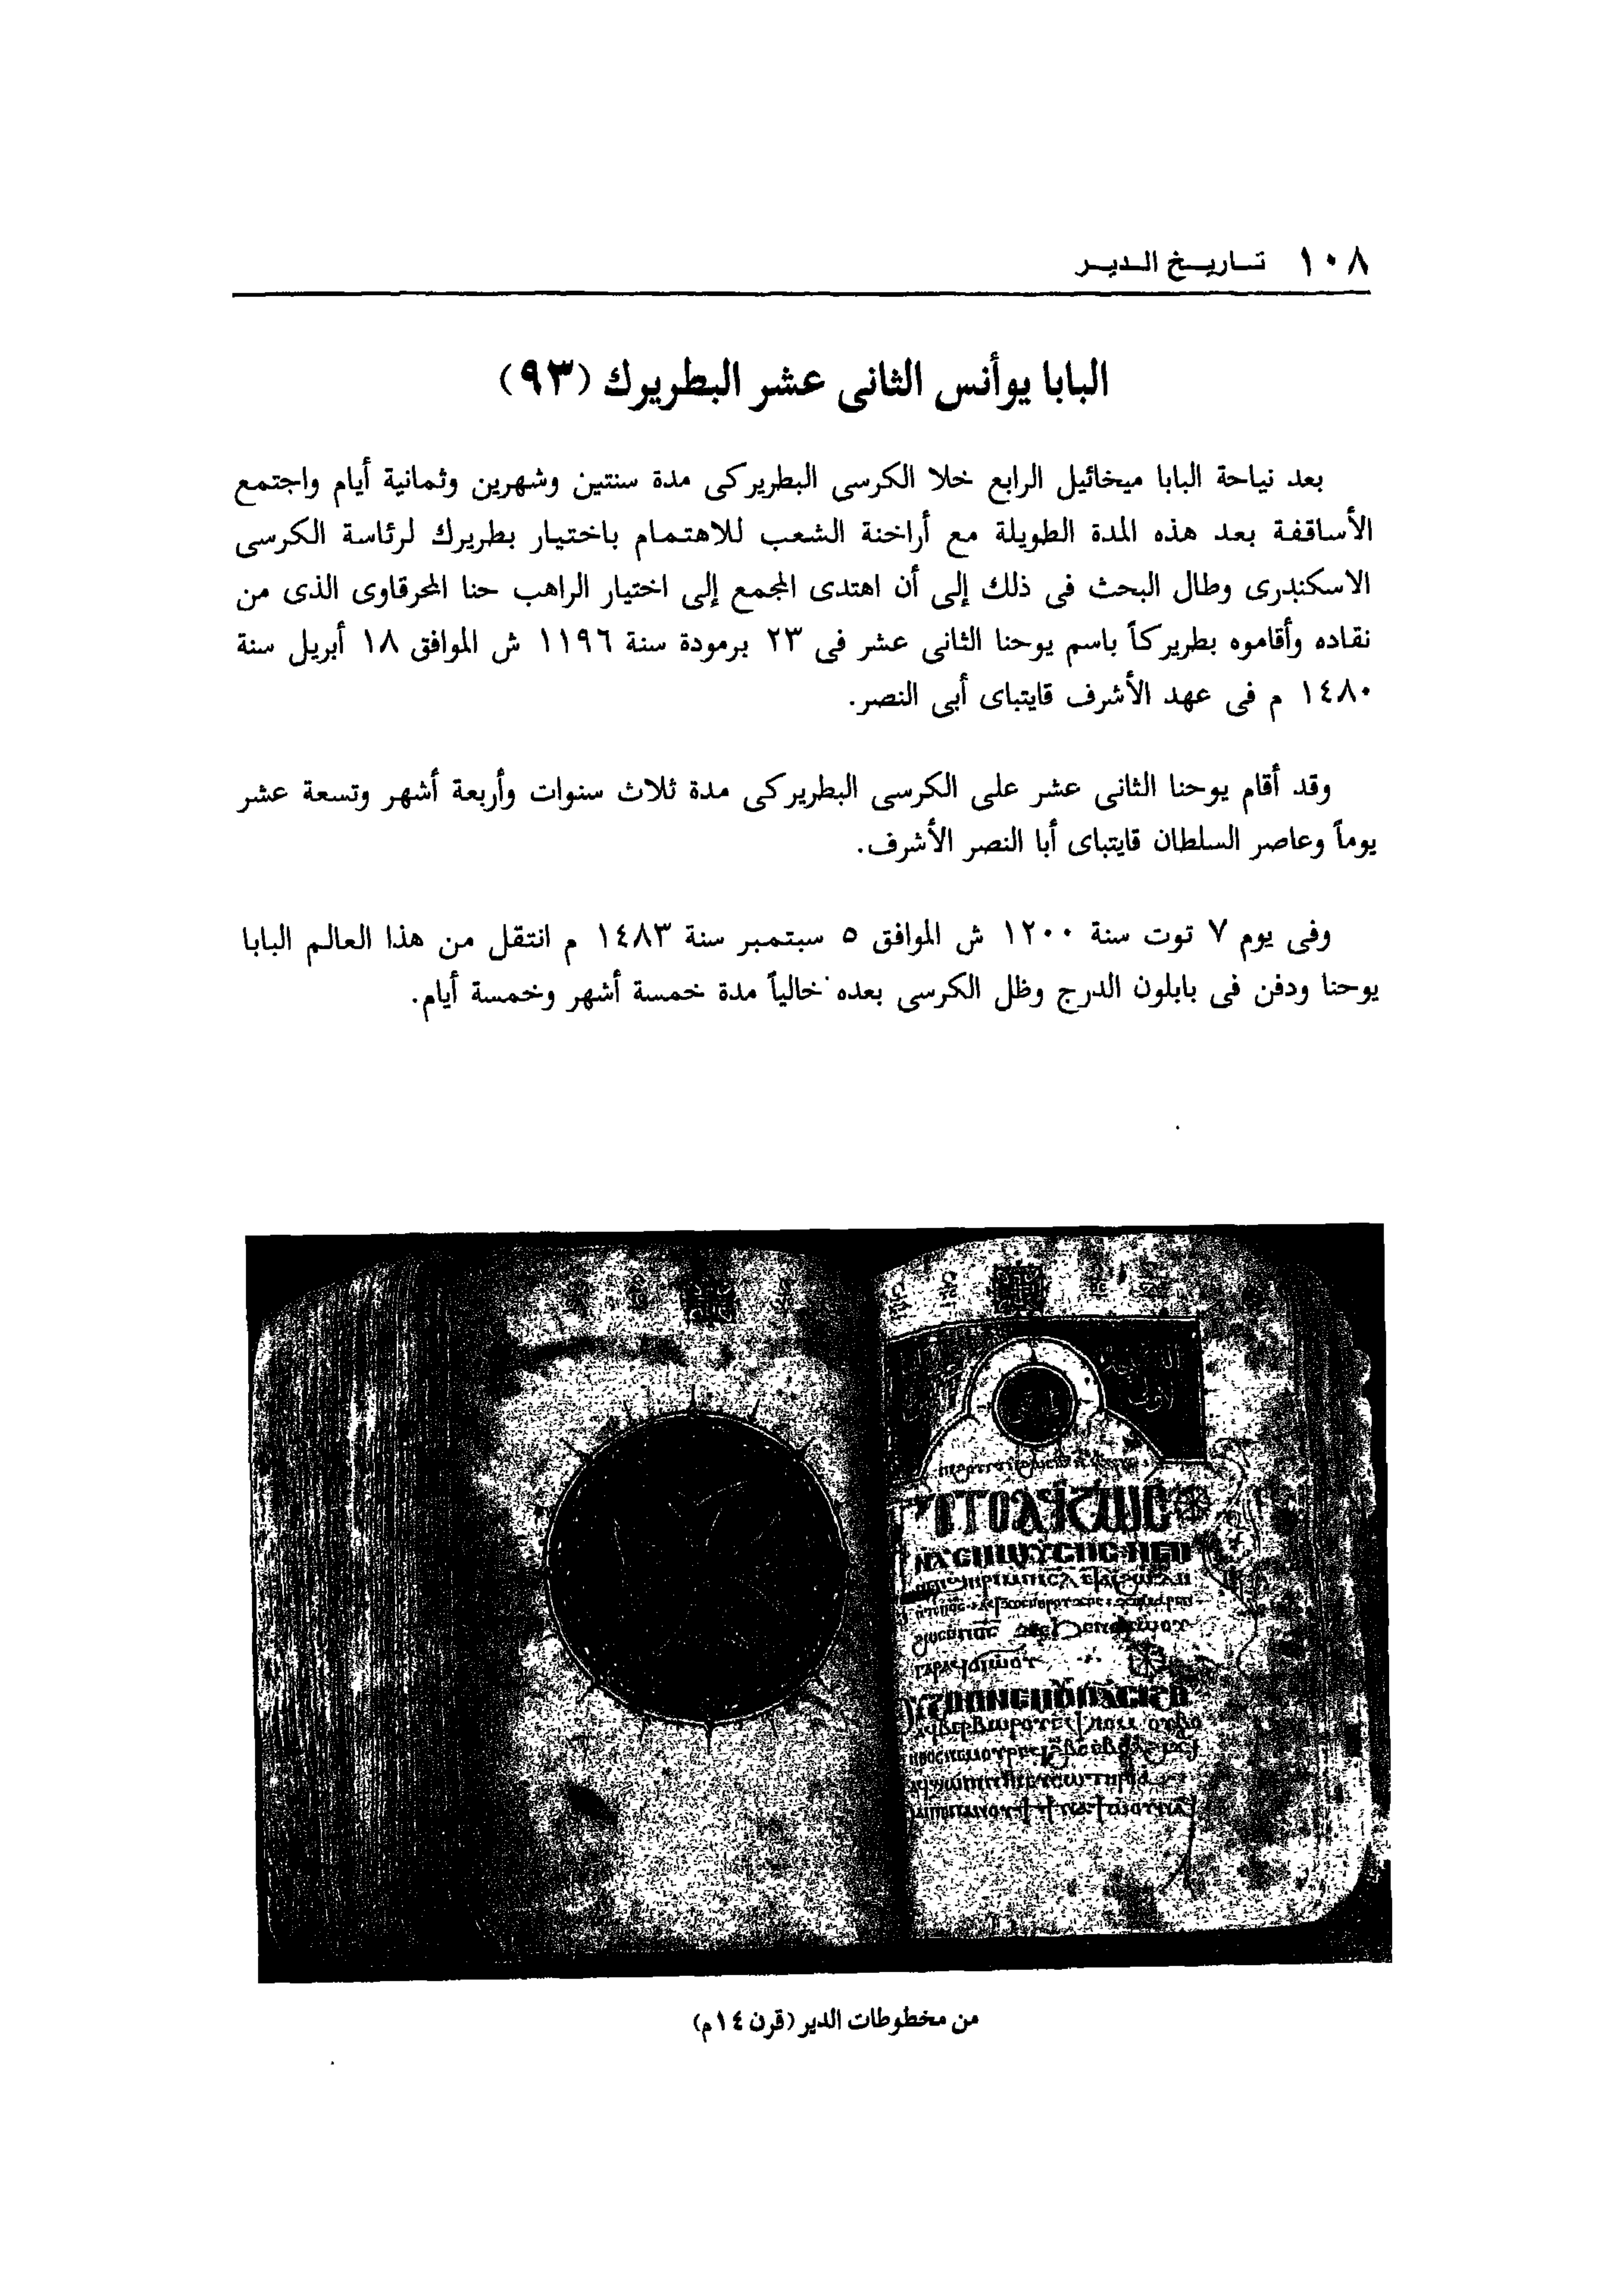 ١٠٨ تاريخ الدير
البابا يوأنس الثانى عشر البطريرك (٩٣)
بعد نياحة البابا ميخائيل الرابع خلا الكرسى البطريركى مدة سنتين وشهرين وثمانية أيام واجتمع
الأساقفة بعد هذه المدة الطويلة مع أراخنة الشعب للاهتمام باختيار بطريرك لرئاسة الكرسى
الاسكندرى وطال البحث فى ذلك إلى أن اهتدى المجمع إلى اختيار الراهب حنا المحرقاوى الذى من
نقاده وأقاموه بطريركاً باسم يوحنا الثانى عشر فى ٢٣ برمودة سنة ١١٩٦ ش الموافق ١٨ أبريل سنة
١٤٨٠ م فى عهد الأشرف قايتباى أبى النصر.
وقد أقام يوحنا الثانى عشر على الكرسى البطريركى مدة ثلاث سنوات وأربعة أشهر وتسعة عشر
يوماً وعاصر السلطان قايتباى أبا النصر الأشرف.
وفى يوم ٧ توت سنة ١٢٠٠ ش الموافق ٥ سبتمبر سنة ١٤٨٣ م انتقل من هذا العالم البابا
يوحنا ودفن فى بابلون الدرج وظل الكرسى بعده خالياً مدة خمسة أشهر وخمسة أيام.
من مخطوطات الدير (قرن ١٤م)